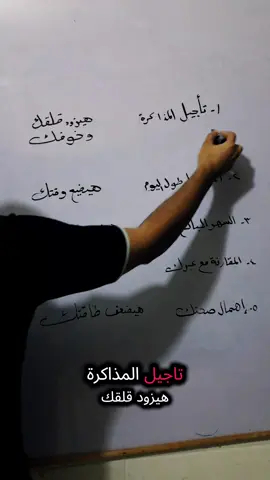 ١- تأجيل المذاكرة هيزود قلقك
وخوفك
طول اليوم هيضيع وقتك
٣- السهر
٤- المقارنة مع غيرك
٥- إهمال صحتك هيضعف طاقتك
تاجيل المذاكرة
هيزود قلقك